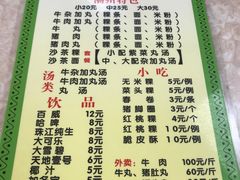 潮州特色
小20元 中25元 大30元
牛杂加丸 (粿条、面、米粉)
牛肉加丸 (粿条、面、米粉)
牛丸 (粿条、面、米粉)
猪肉 (粿条、面、米粉)
猪肉丸 (粿条、面、米粉)
沙茶面 套餐 小配紫菜丸汤
沙茶粿 套餐 中、大配杂加丸汤
汤类
牛杂加丸汤
牛肉加丸汤
饮品
百威 12元
哈啤 8元
珠江纯生 8元
大可乐 8元
大雪碧 8元
天地壹号 6元
椰汁 6元
小吃
无米粿 5元/例
菜头粿 5元/例
春卷 3元/条
猪脚圈 3元/个
红桃粿 4元/个
红桃粿 10元/例
脆皮豚 10元/例
外卖: 牛肉 100元/斤
牛丸、猪肚丸 60元/斤